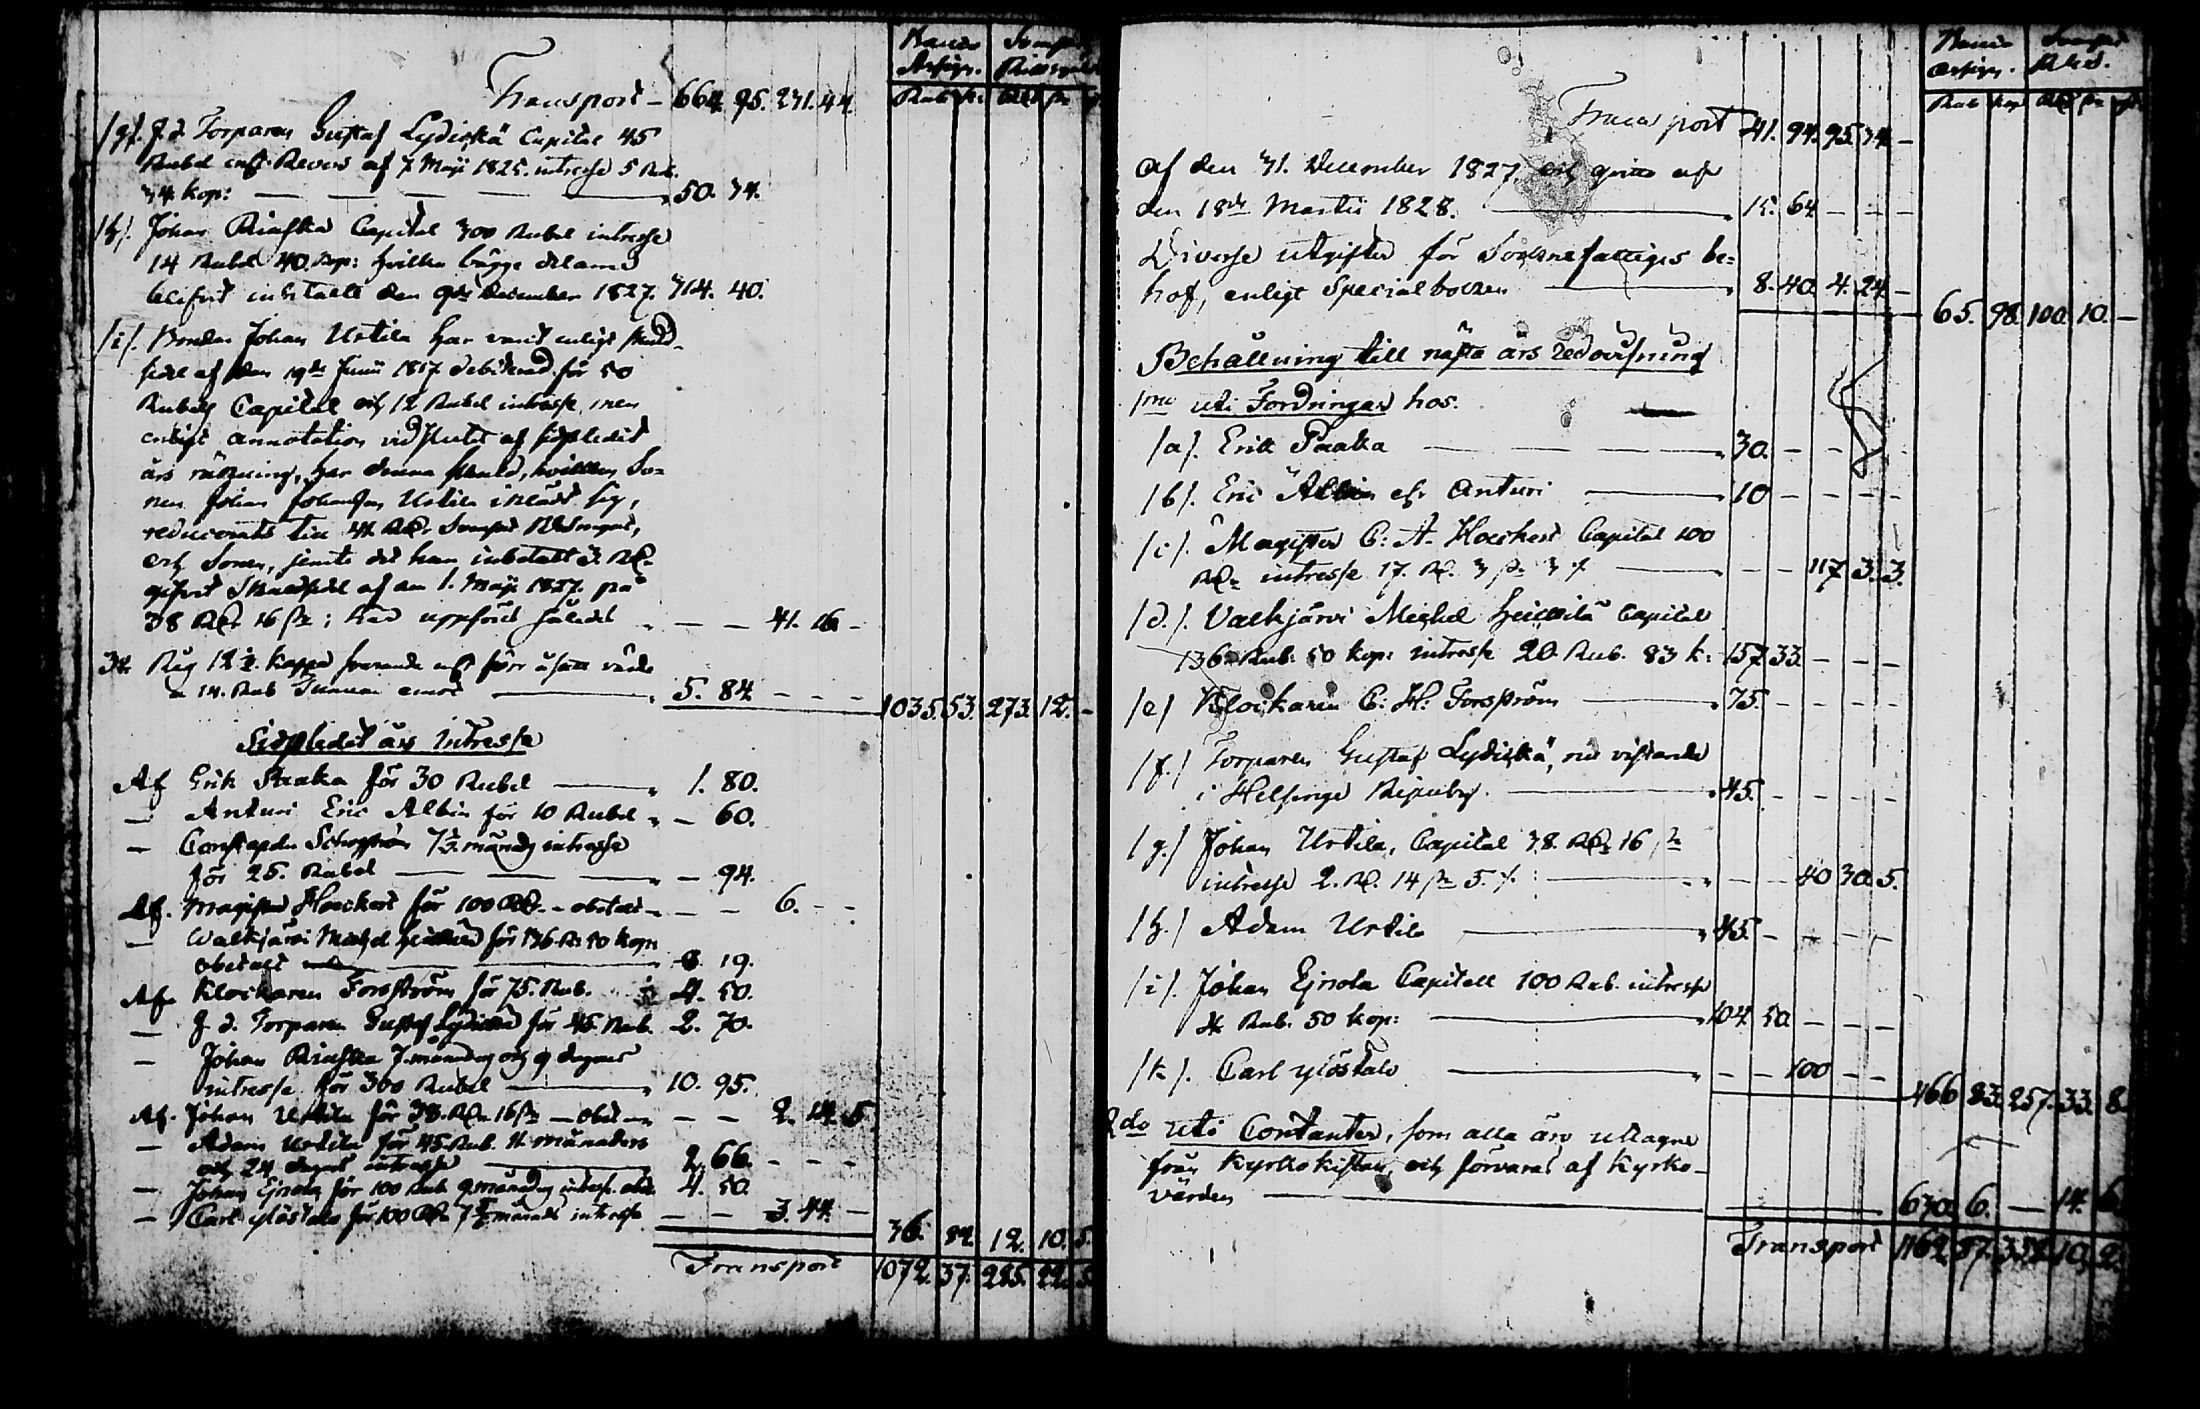 Banco Assign. Svenskt Riksgäld
Rub. k. RD sk. r.
Transport – 664. 95. 231. 44.
/g/. f.d. Torparen Gustaf Lydickä Capital 45
Rubel enl. Revers af 7 Maji 1825. intresse 5 Rub.
34 kop: — — — 50. 34.
/h/. Johan Capital 300 Rubel intresse
14 Rubel 40 kop: hvilka bägge
blifvit inbetalt den 9de December 1827. 314. 40.
/i/. Bonden Johan Urtila har varit enligt skuld-
sedel af den 19de Junii 1817 debiterad för 50
Rubels Capital och 12 Rubel intresse, men
enligt annotation vid slutet af sistledit
års räkning, har denna skuld, hvilken So-
nen Johan Johansson Urtila iklädt sig,
reducerats till 41 RD. Svenskt Riksgäld,
och Sonen, jemte det han inbetalt 3. RD.
gifvit Skuldsedel af den 1. Maji 1827. på
38 RD. 16 sk; här uppföres således — — 41. 16 –
Råg 12½ kappa
a 14. Rub Tunnan emot — 5. 84 – – –
1035. 53. 273. 12. –
Sistledit års Intresse
Af Erik Paaka för 30 Rubel — 1. 80.
— Anturi Eric Albin för 10 Rubel – – 60.
— 7½ månads intresse
för 25. Rubel — — — – 94.
Af. Magister Hoeckert för 100 RD. – obetalt – – – 6. – –
— Walkjärvi Michel Heikkilä för 136 R. 50 kop.
obetalt — 8. 19.
Af Klockaren Forsström för 75. Rub. 4. 50.
— f.d. Torparen Gustaf Lydickä för 45. Rub. 2. 70.
— Johan 7. månaders och 9 dagars
intresse för 300 Rubel — 10. 95.
Af. Johan Urtila för 38. RD. 16 sk — obet – – – 2. 14. 5.
— Adam Urtila för 45 Rub. 11 månaders
och 24 dagars intresse — 2. 66. – – –
— Johan Ejnola för 100 Rub 9. månaders intress. obet. 4. 50.
— Carl Ylöstalo för 100 RD. 7½ månads intresse – – 3. 44. –
36. 84. 12. 10. 5.
Transport 1072. 37. 285. 22. 5.
Banco Assign. Svenskt Rikd.
Rub kop RD sk r.
Transport 41. 94. 95. 34. –
af den 31. December 1827. och qvitto af
den 18de Martii 1828. — 15. 64 – – –
Diverse utgifter för Socknefattiges be=
hof, enligt Specialboken — 8. 40. 4. 24. –
65. 98. 100. 10. –
Behållning till nästa års redovisning
1mo uti Fordringar hos.
/a/. Erik Paaka — — — 30. – – – –
/b/. Eric Albin el. Anturi — 10 – – – –
/c/. Magister C: A. Hoeckert Capital 100
RD. intresse 17. RD. 3 sk 3 r. — – – 117. 3. 3.
/d/. Valkjärvi Michel Heikkilä Capital
136 Rub. 50 kop: intresse 20. Rub. 83 k: 157. 33. – – –
/e/ Klockaren C: H: Forsström — 75. – – – –
/f/ Torparen Gustaf Lydickä, nu vistande
i Helsinge — 45. – – – –
/g/ Johan Urtila, Capital 38. RD. 16 sk
intresse 2. RD. 14 sk 5. r. — – – 40 30. 5.
/h/ Adam Urtila — 45. – – – –
/i/. Johan Ejnola Capitall 100 Rub. intresse
4 Rub. 50 kop: — 104 50 – – –
/k/. Carl Ylöstalo — – – 100 – –
466 83. 257. 33. 8.
2do uti Contanter, som alla äro uttagne
från Kyrkokistan, och förvaras af Kyrko-
värden — 630. 6. — 14. 6.
Transport 1162. 87. 358. 10. 2.